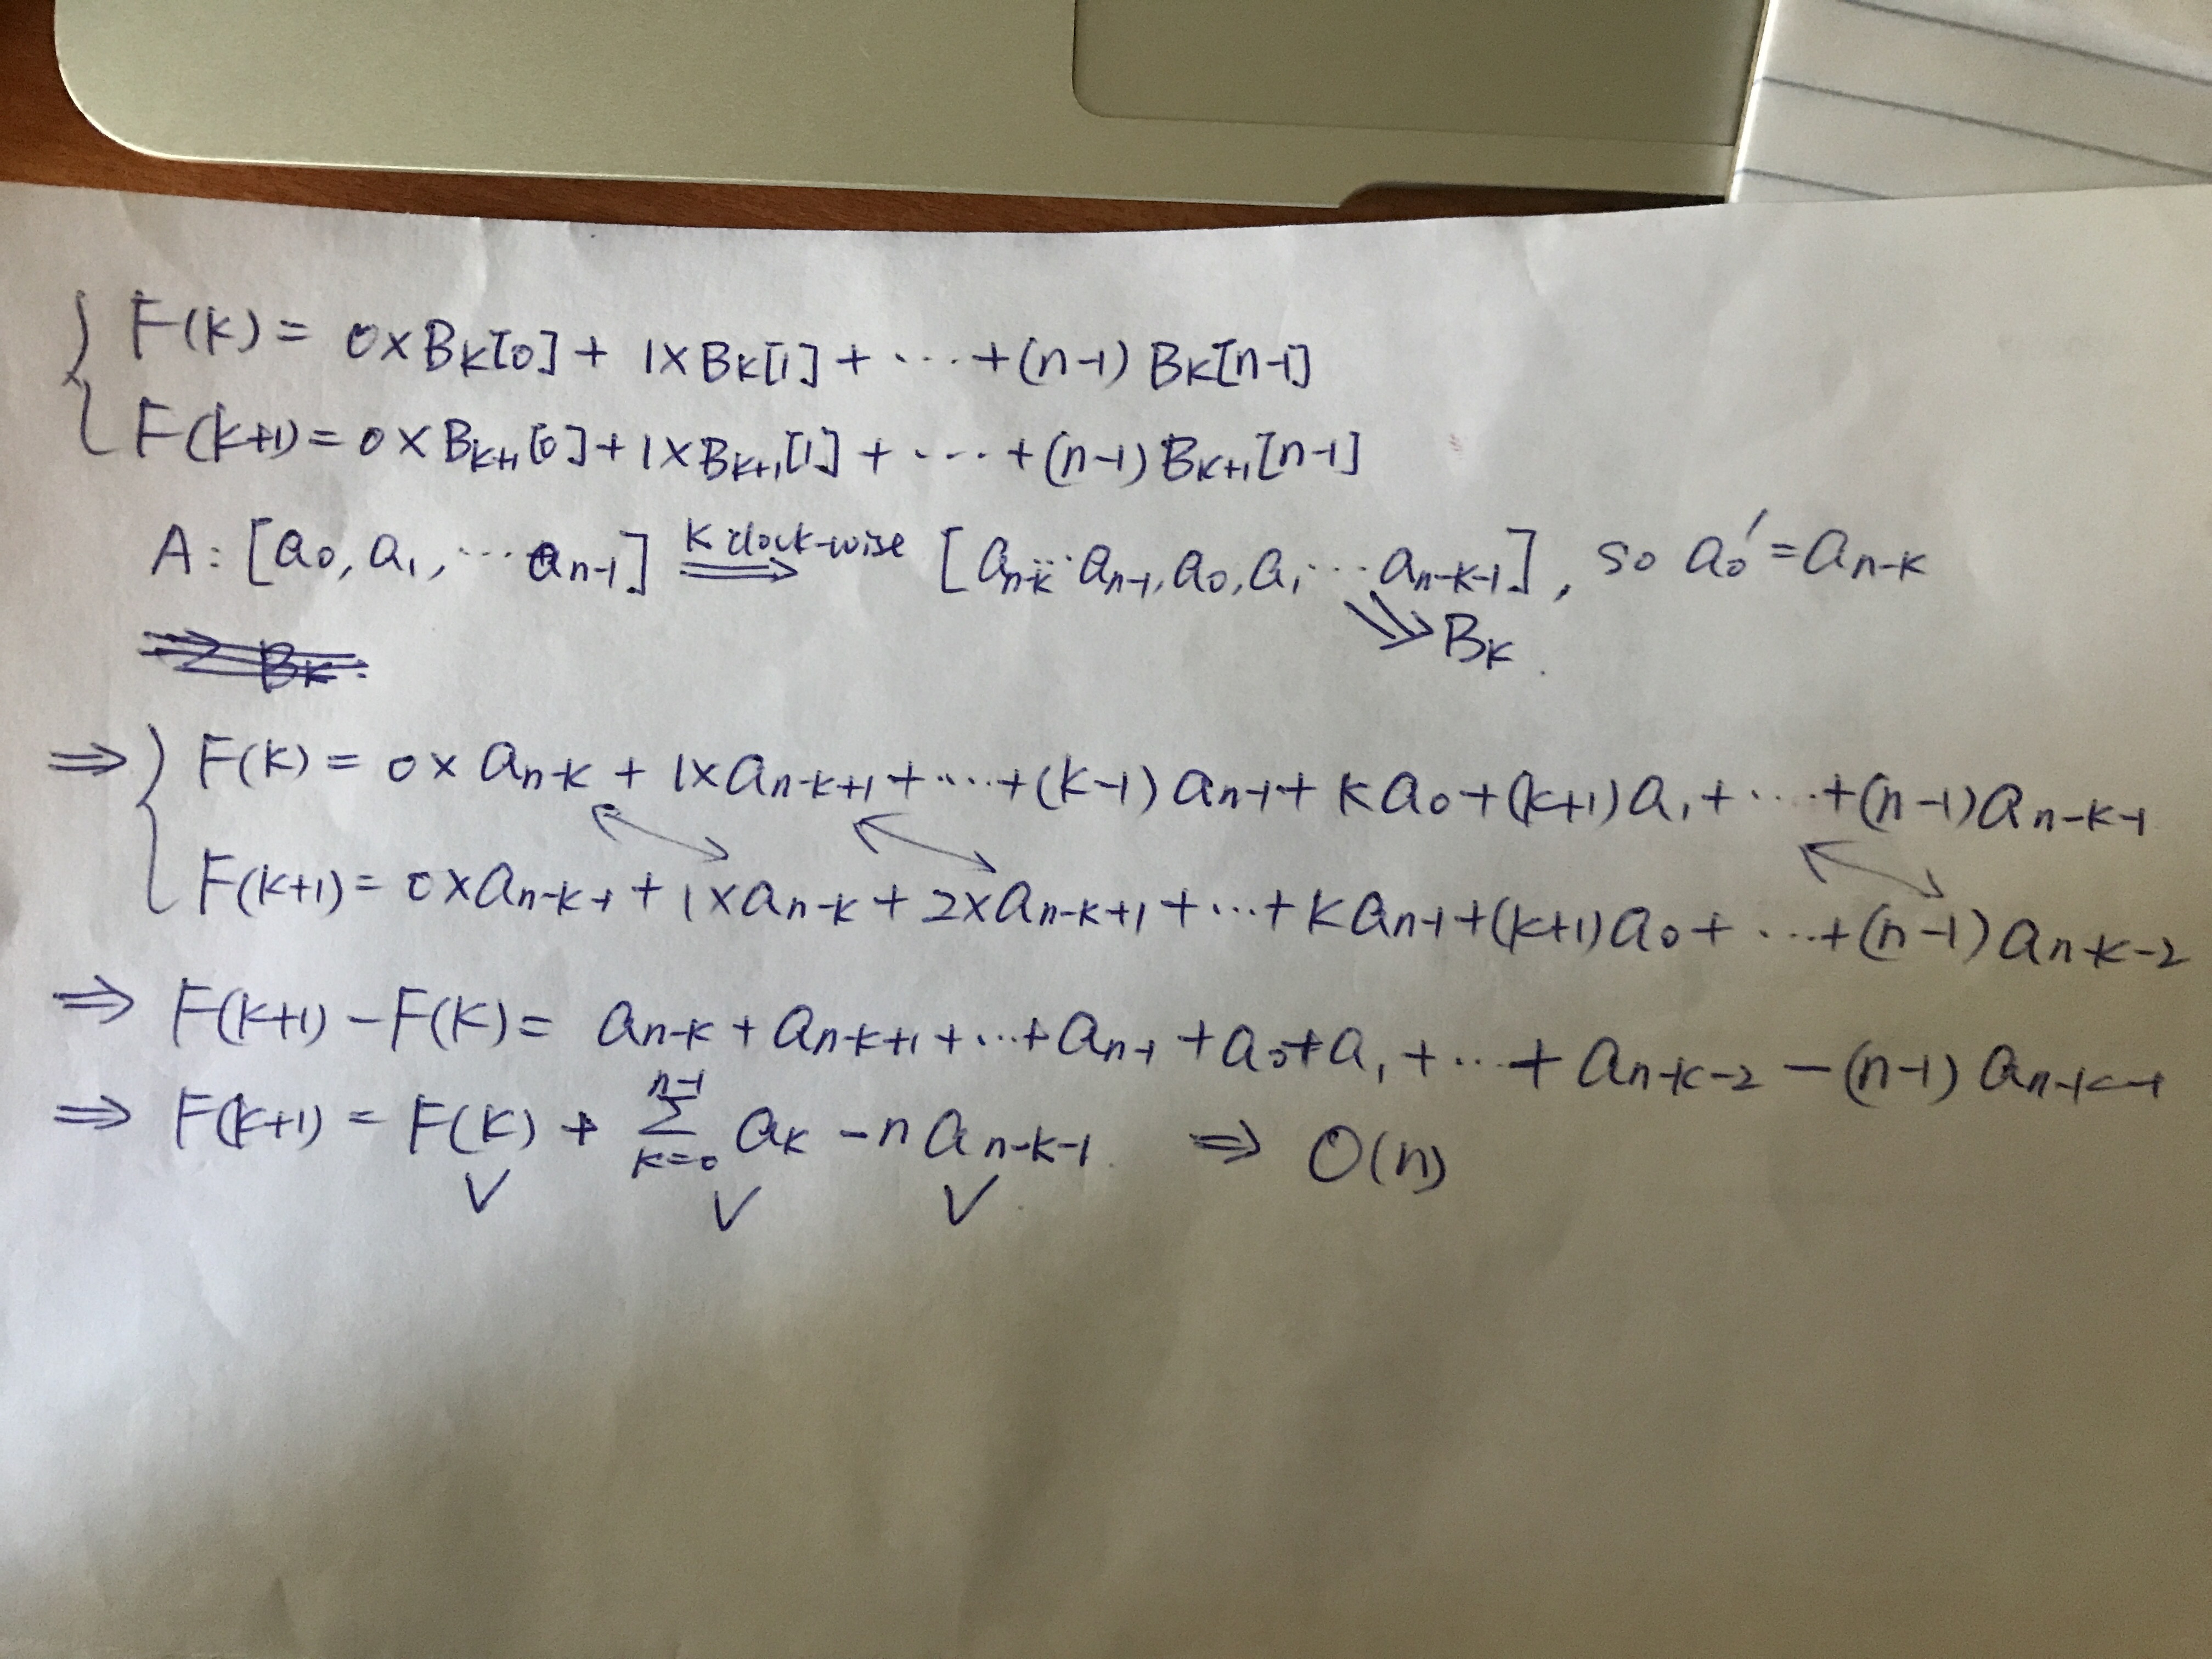 F(k) = 0×Bk[0] + 1×Bk[1] + ··· + (n-1) Bk[n-1]
F(k+1) = 0×Bk+1[0] + 1×Bk+1[1] + ··· + (n-1) Bk+1[n-1]
A: [a0, a1, ··· an-1] k clock-wise ⟹ [an-k ··· an-1, a0, a1 ··· an-k-1], so a0' = an-k
⟹ Bk ⟹ Bk.
⟹ { F(k) = 0× an-k + 1×an-k+1 + ··· + (k-1) an-1 + k a0 + (k+1) a1 + ··· + (n-1) an-k-1
F(k+1) = 0×an-k-1 + 1×an-k + 2×an-k+1 + ··· + k an-1 + (k+1) a0 + ··· + (n-1) an-k-2
⟹ F(k+1) - F(k) = an-k + an-k+1 + ··· + an-1 + a0 + a1 + ··· + an-k-2 - (n-1) an-k-1
⟹ F(k+1) = F(k) + ∑k=0n-1 ak - n an-k-1. ⟹ O(n)
√ √ √